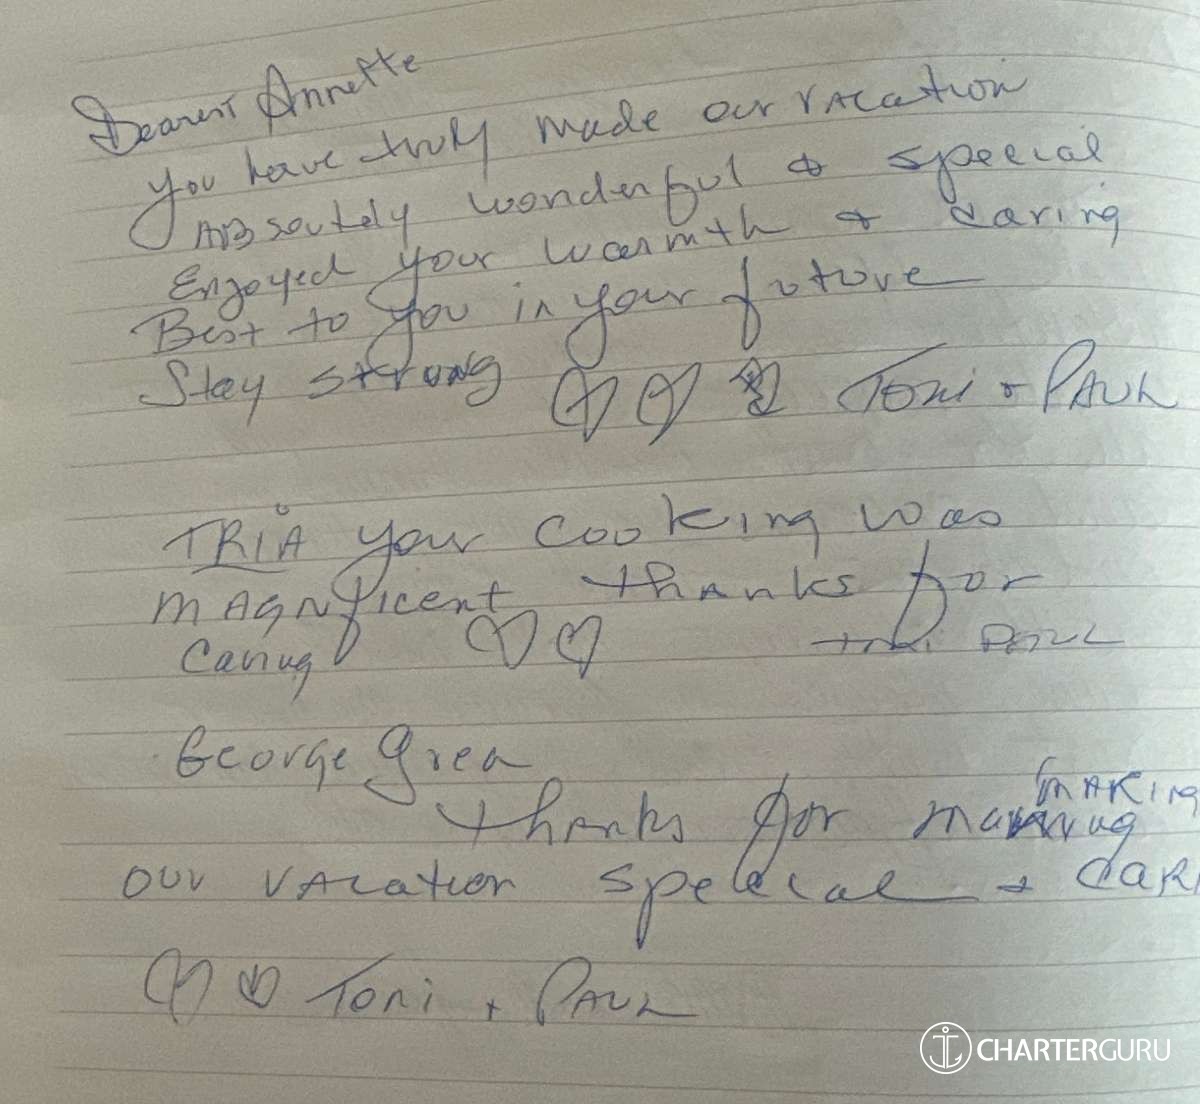 Dearest Annette
You have truly made our vacation
Absoutely wonderful & special
Enjoyed your warmth & caring
Best to you in your future
Stay strong Toni + PAUL
TRIA your cooking was
MAGNificent thanks for
caring Toni PAUL
George Grea
thanks for making
our vacation special + CAR
Toni + PAUL
CHARTERGURU